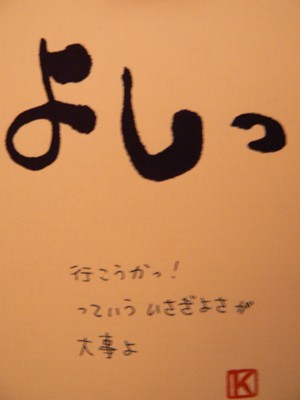 よしっ
行こうかっ!
っていういさぎよさが
大事よ
K